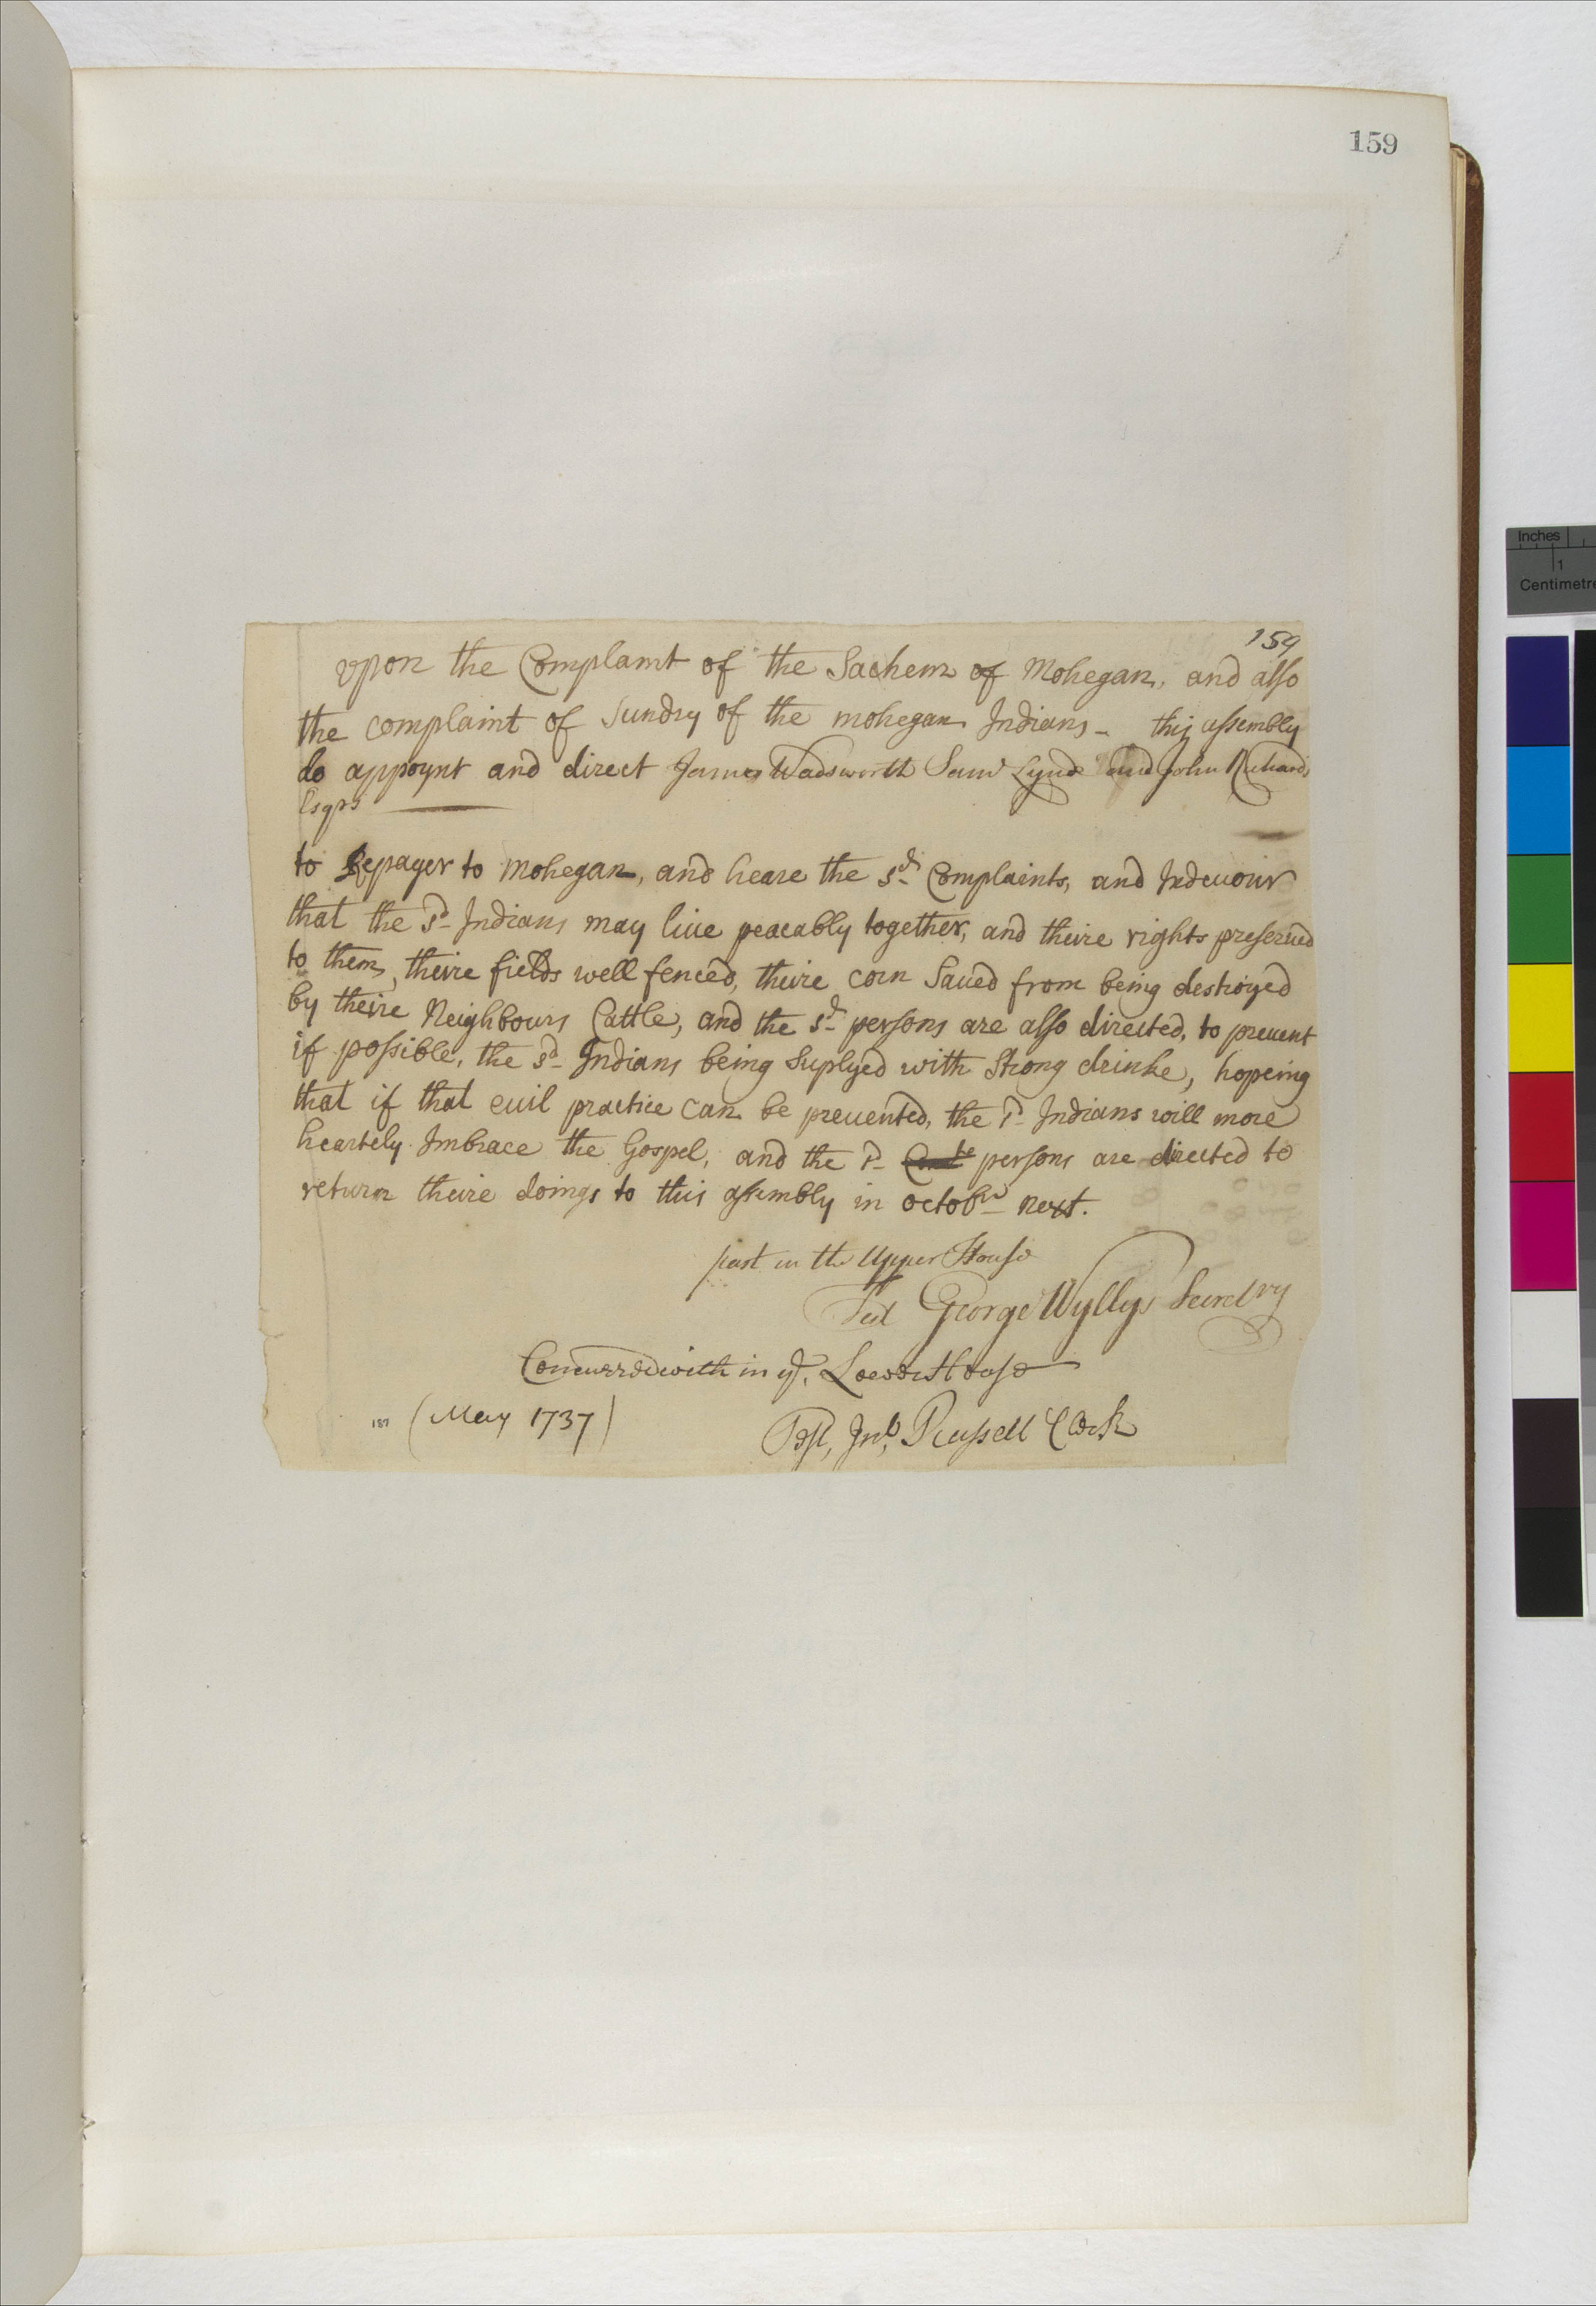 159
159
Vpon the Complaint of the Sachem of Mohegan, and also
the complaint of Sundry of the mohegan Indians - this assembly
do appoynt and direct James Wadsworth Saml Lynde and John Richards
Esqrs
to Repayer to Mohegan, and heare the sd Complaints, and Indeuour
that the sd Indians may liue peacably together, and theire rights preserued
to them, theire fields well fenced, theire corn Saued from being destroyed
by theire Neighbours Cattle, and the sd persons are also directed, to preuent
if possible, the sd Indians being Suplyed with Strong drinke, hopeing
that if that euil practice can be preuented, the sd Indians will more
heartely Imbrace the Gospel, and the sd persons are directed to
return theire doings to this assembly in octobr next.
past in the Upper House
Test George Wyllys Secretry
Concurred with in ye. Lower House
(May 1737)
Test, Jno. Russell Clerk
Inches
1
Centimetre